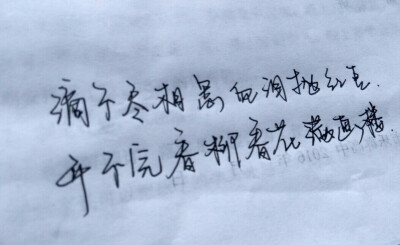 滴不尽相思血泪抛红豆.
开不完春柳春花满画楼.